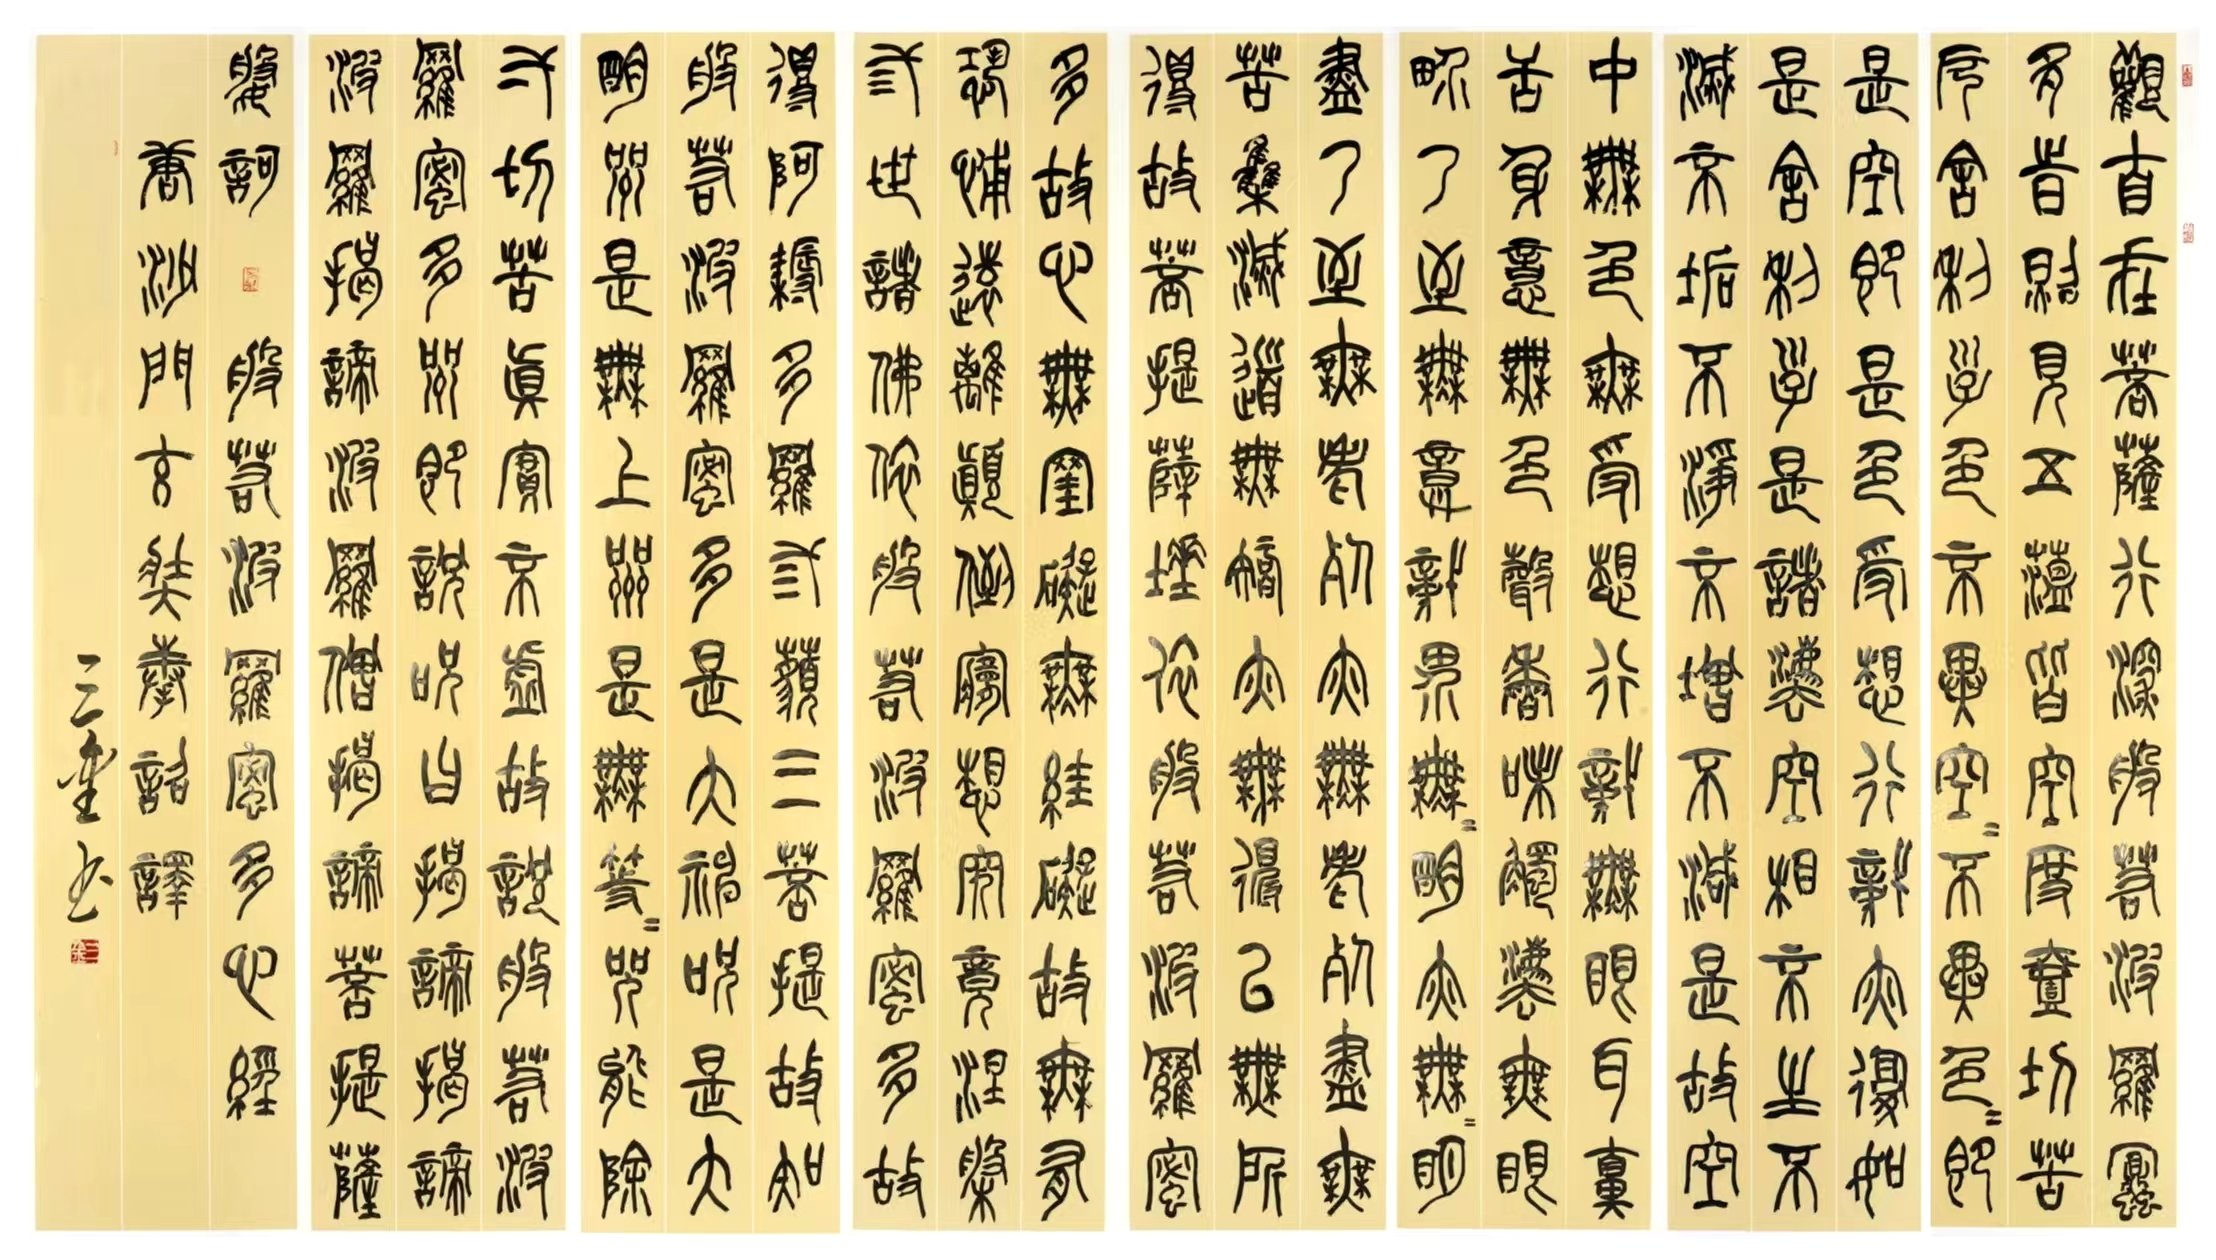 觀自在菩薩行深般若波羅蜜
多時照見五蘊皆空度壹切苦
厄舍利子色不異空〻不異色〻即
是空即是色受想行識亦復如
是舍利子是諸法空相不生不
滅不垢不淨不增不減是故空
中無色無受想行識無眼耳鼻
舌身意無色聲香味觸法無眼
界乃至無意識界無〻明亦無〻明
盡乃至無老死亦無老死盡無
苦集滅道無智亦無得以無所
得故菩提薩埵依般若波羅蜜
多故心無罣礙無罣礙故無有
恐怖遠離顛倒夢想究竟涅槃
弎世諸佛依般若波羅蜜多故
得阿耨多羅弎藐三菩提故知
般若波羅蜜多是大神咒是大
明咒是無上咒是無等〻咒能除
弌切苦真實不虛故說般若波
羅蜜多咒即說咒曰揭諦揭諦
波羅揭諦波羅僧揭諦菩提薩
婆訶 般若波羅蜜多心經
唐沙門玄奘奉詔譯
三 书